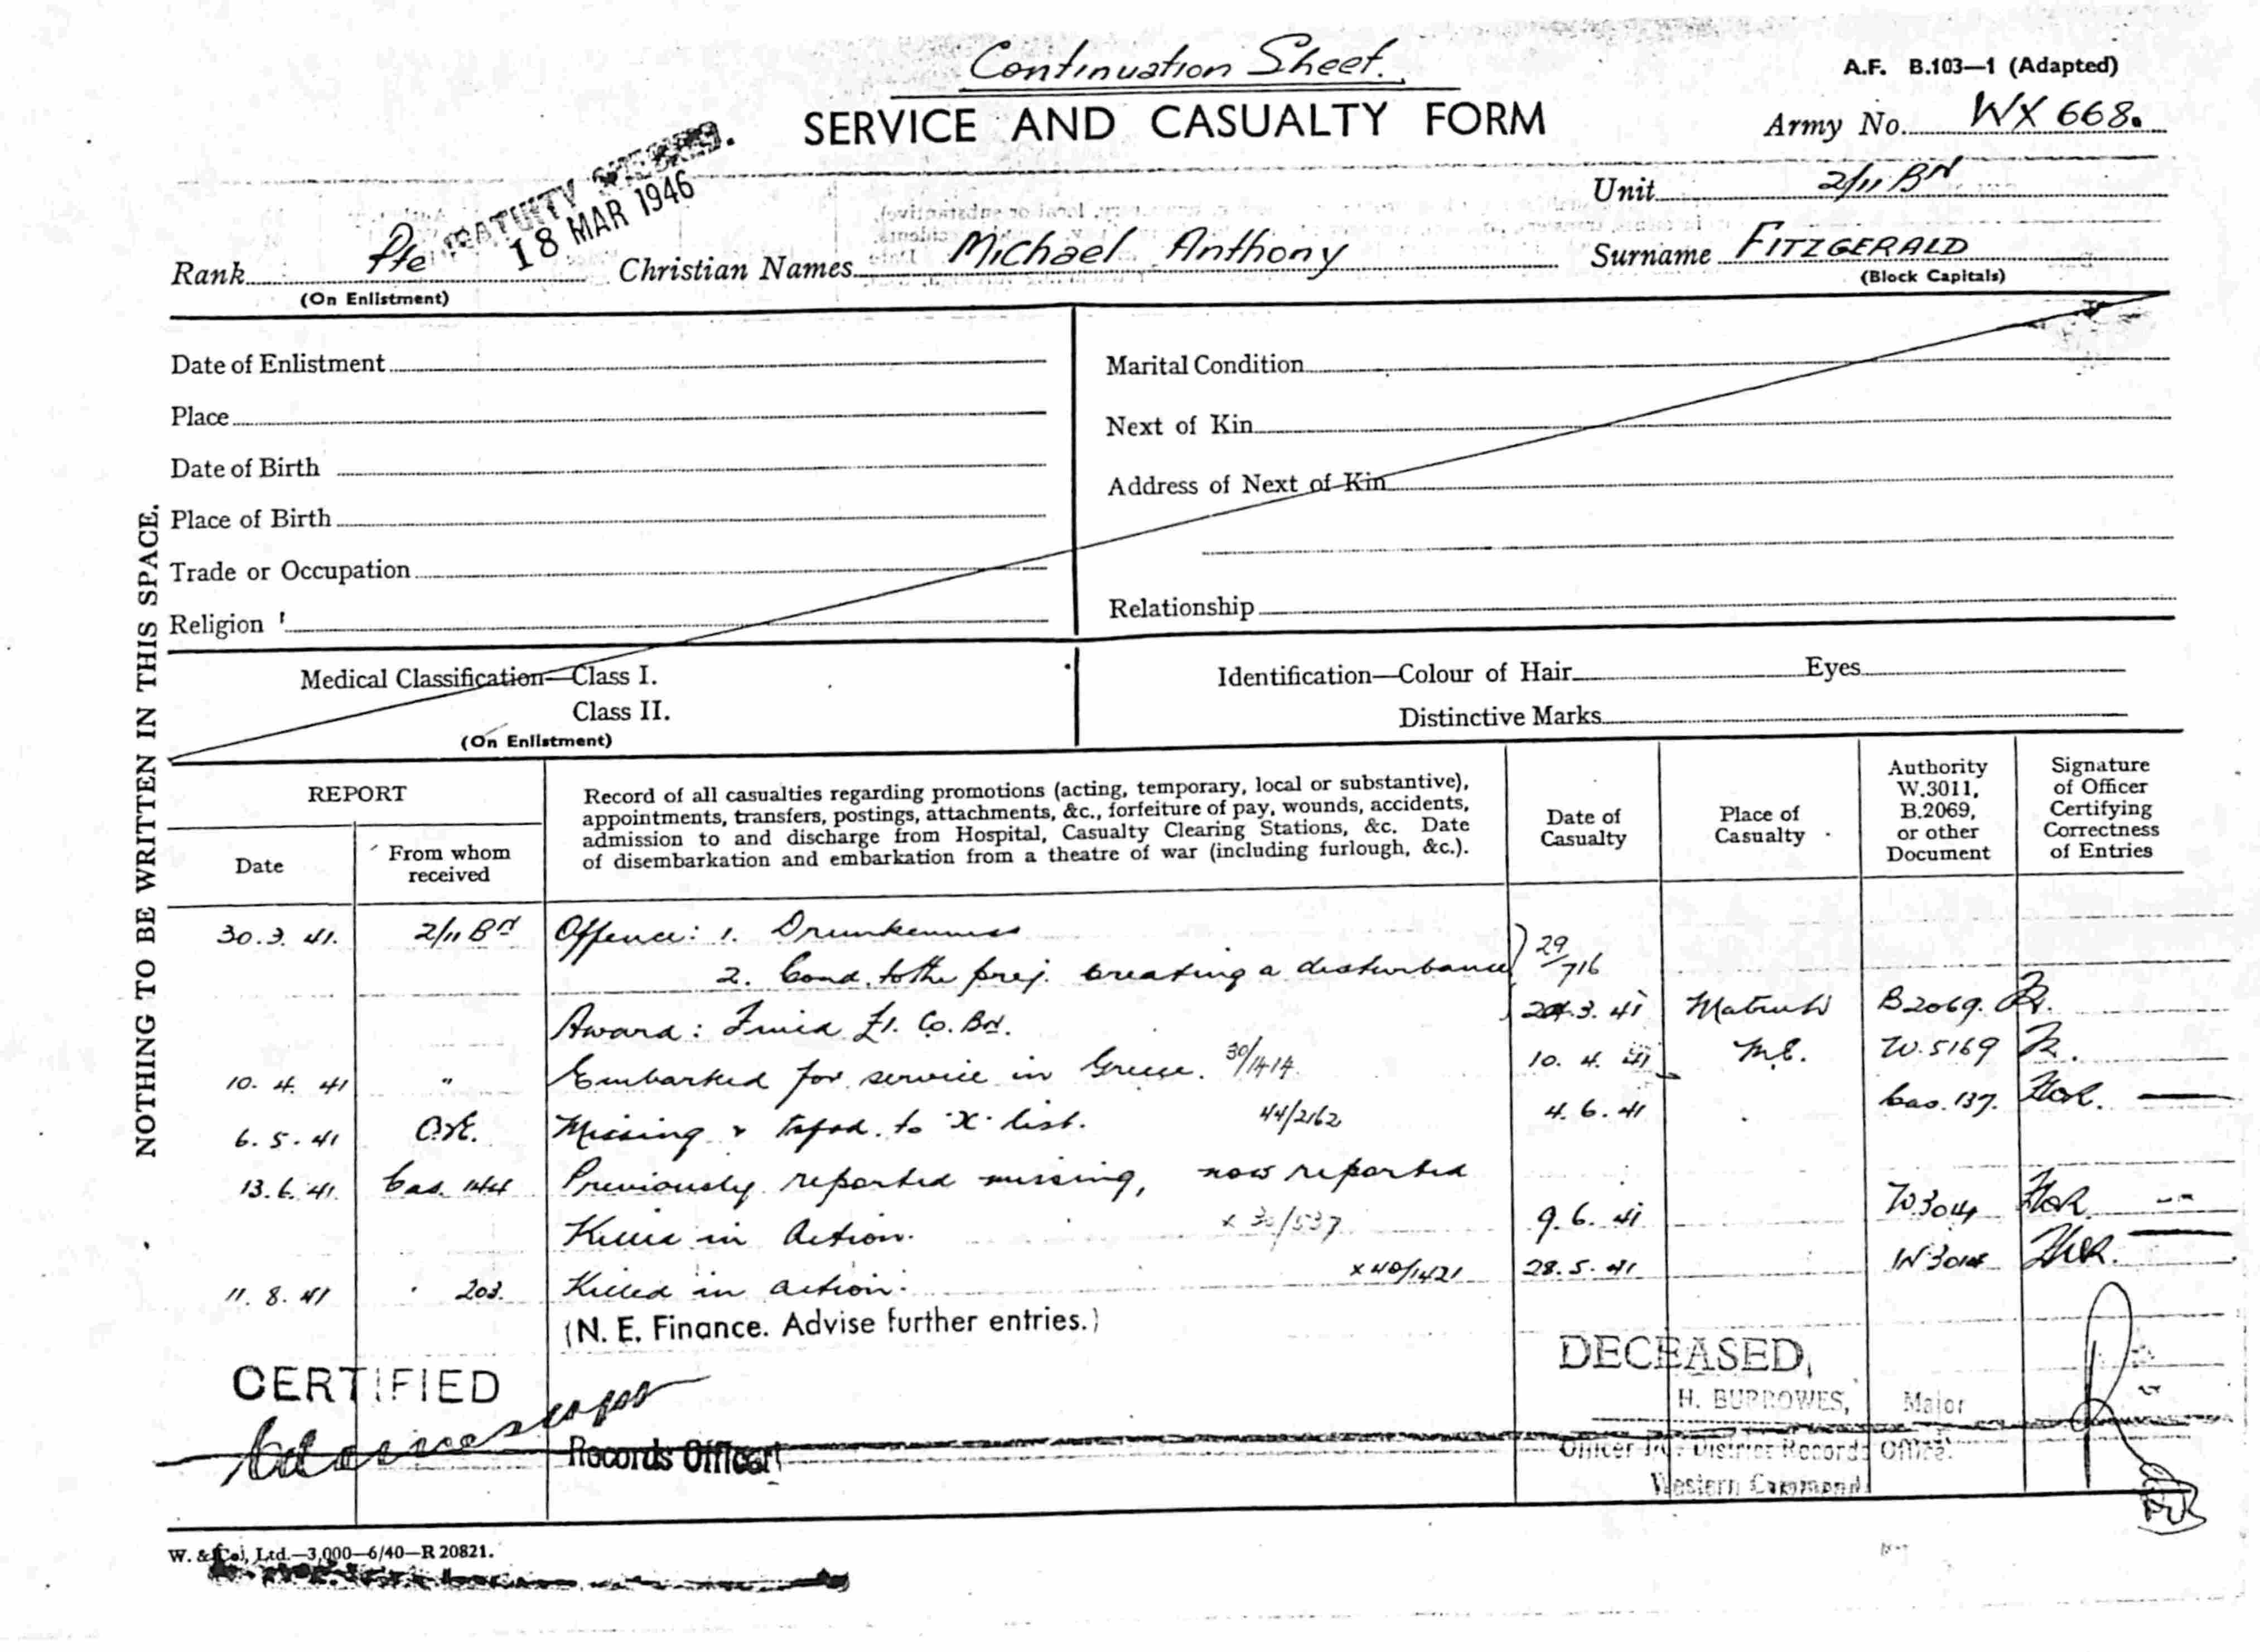 Continuation Sheet.
A.F. B.103—1 (Adapted)
SERVICE AND CASUALTY FORM
Army No. WX 668.
Unit 2/11 Bn
18 MAR 1946
Rank Pte Christian Names Michael Anthony Surname FITZGERALD
(On Enlistment) (Block Capitals)
Date of Enlistment
Marital Condition
Place
Next of Kin
Date of Birth
Address of Next of Kin
Place of Birth
Trade or Occupation
Relationship
Religion
Medical Classification—Class I.
Class II.
(On Enlistment)
Identification—Colour of Hair Eyes
Distinctive Marks
NOTHING TO BE WRITTEN IN THIS SPACE.
REPORT
Date
From whom received
Record of all casualties regarding promotions (acting, temporary, local or substantive),
appointments, transfers, postings, attachments, &c., forfeiture of pay, wounds, accidents,
admission to and discharge from Hospital, Casualty Clearing Stations, &c. Date
of disembarkation and embarkation from a theatre of war (including furlough, &c.).
Date of Casualty
Place of Casualty
Authority W.3011, B.2069, or other Document
Signature of Officer Certifying Correctness of Entries
30.3.41. 2/11 Bn Offence: 1. Drunkenness
2. Cond. to the prej. creating a disturbance 29/716
Award: Fined £1. Co. Bn. 3.41 Matruh B2069.
10.4.41 " Embarked for service in Greece. 30/1414 10.4.41 M.E. W.5169
6.5.41 Missing & tsfod. to "X" list. 44/2162 4.6.41 Cas.137.
13.6.41. Cas. 144 Previously reported missing, now reported
Killed in Action. x 30/537 9.6.41 W3014
11.8.41 " 203. Killed in action. x40/1421 28.5.41 W3014
(N. E. Finance. Advise further entries.)
CERTIFIED
DECEASED,
H. BURROWES, Major
Records Officer
Officer I/c District Records Office.
Western Command
W. & Co., Ltd.—3,000—6/40—R 20821.